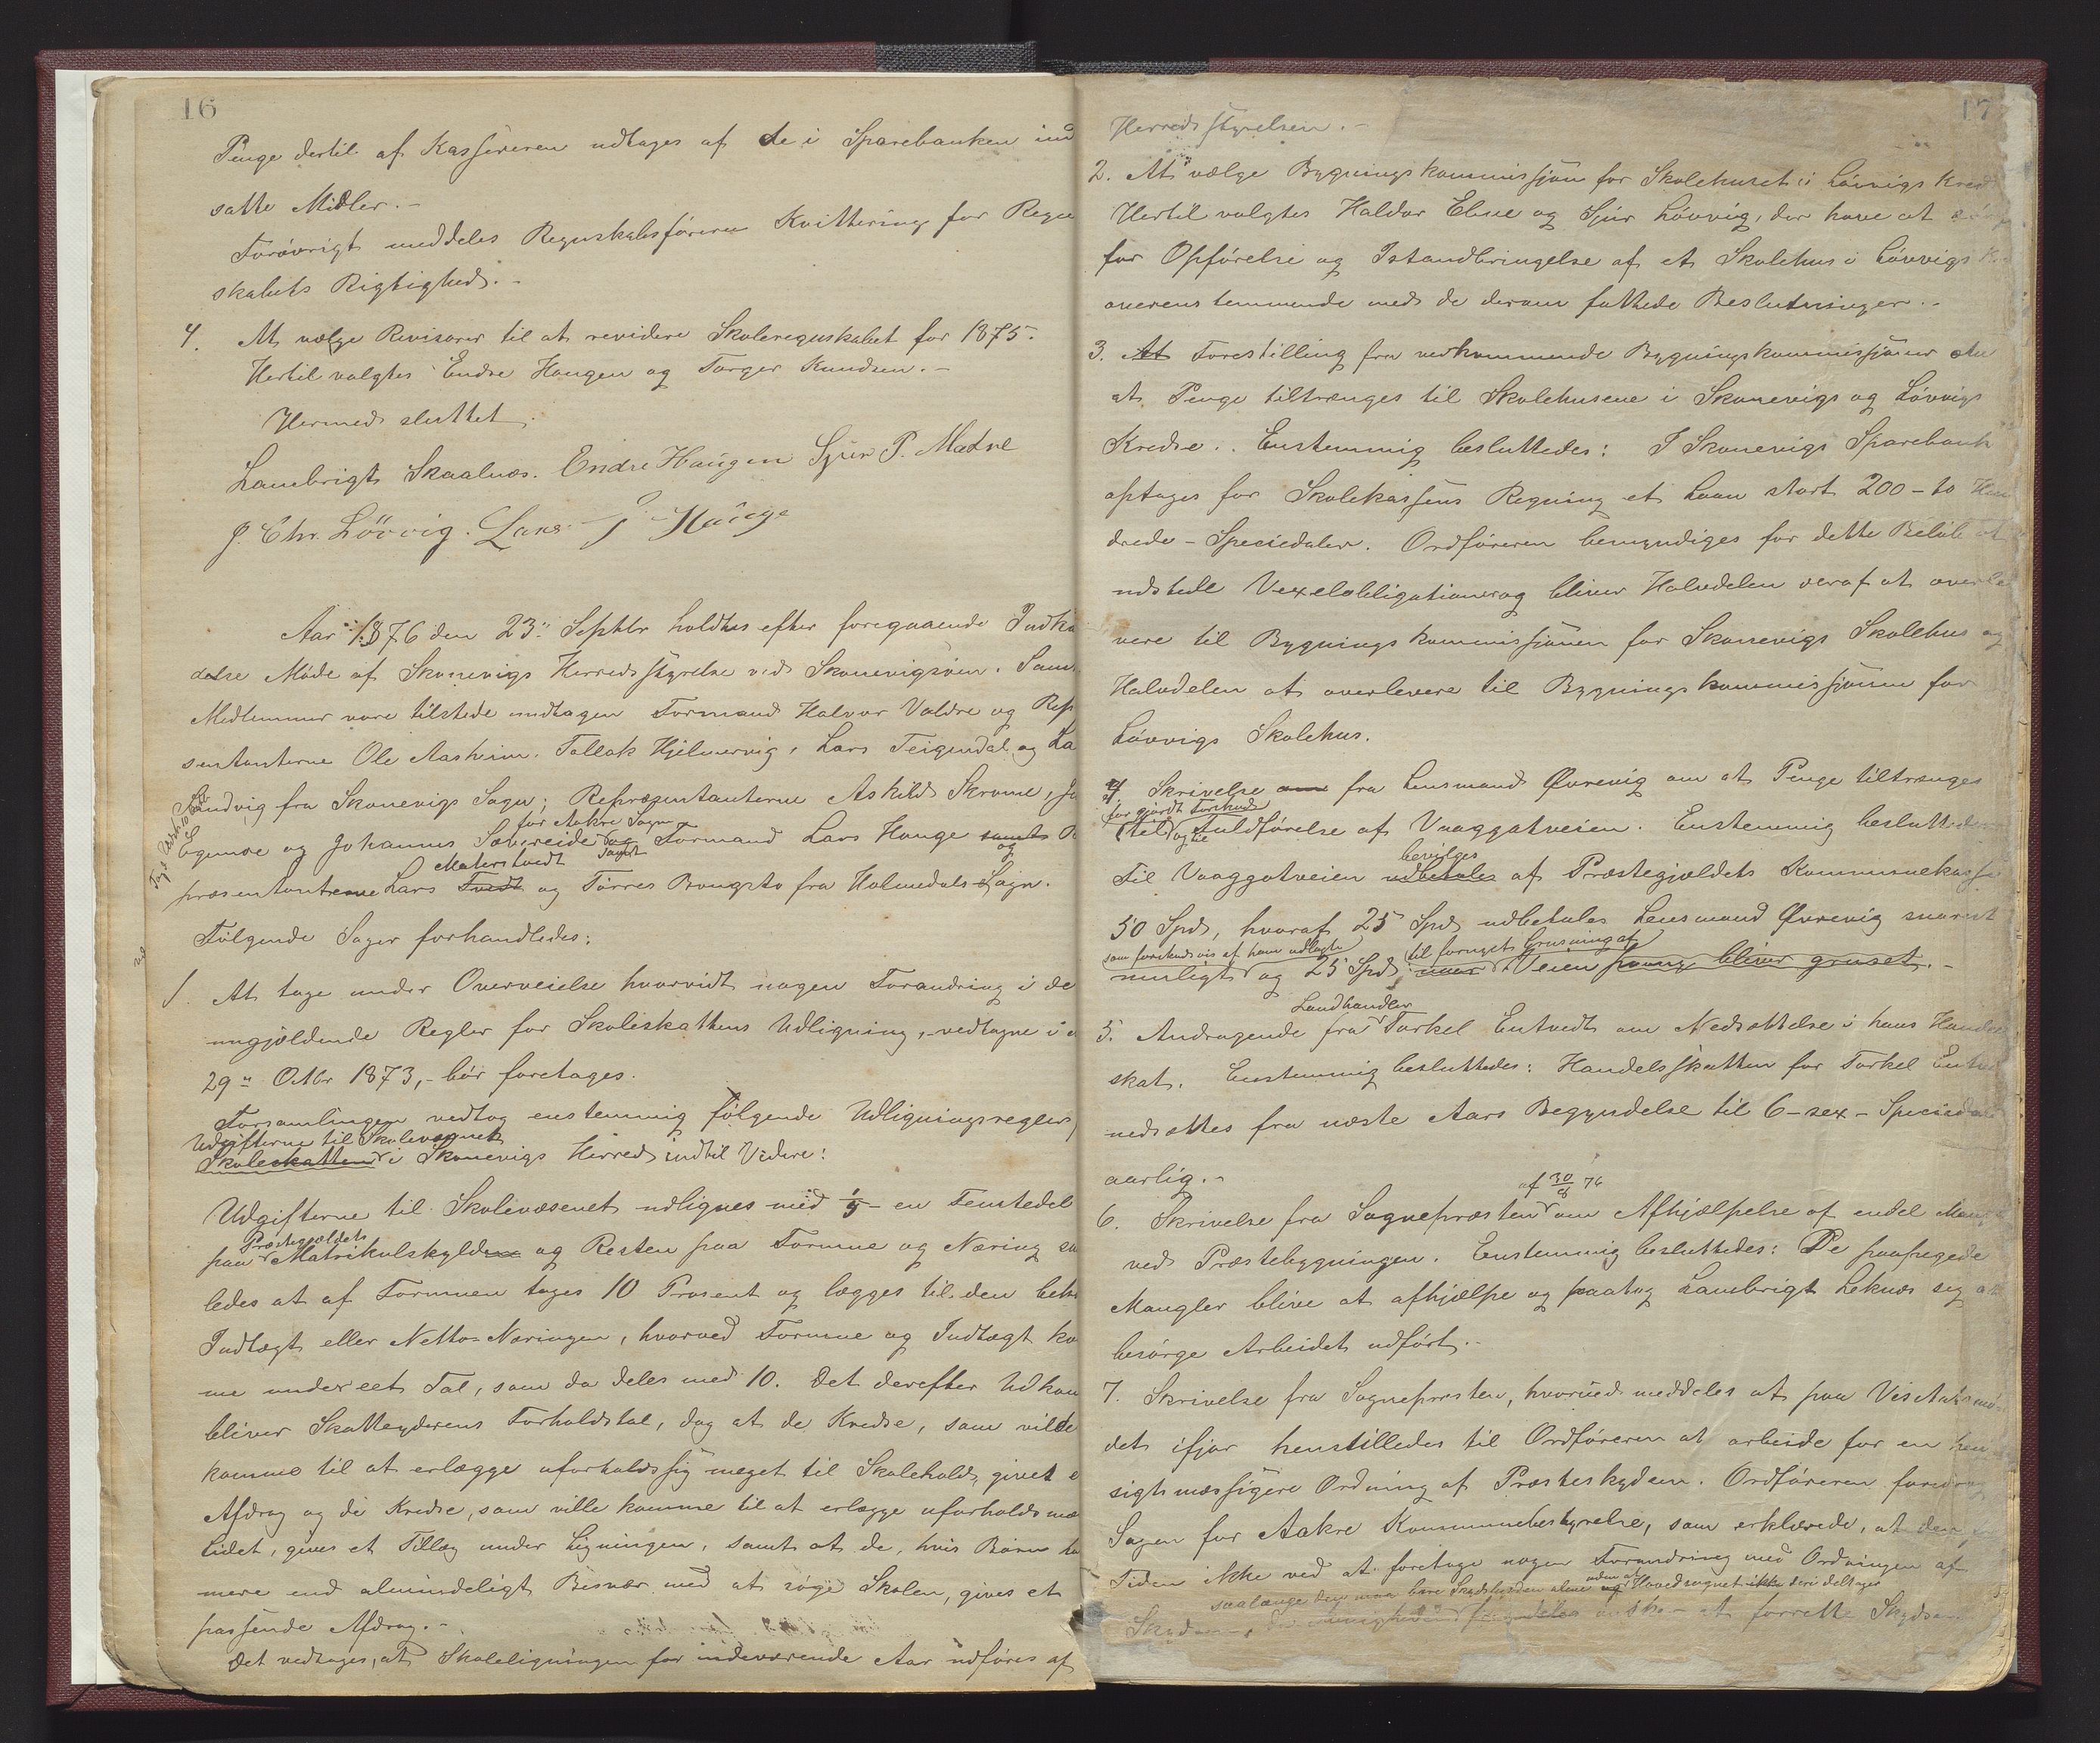 16
Penge dertil af Kassereren udtages af de i Sparebanken ind
satte Midler.-
Forøvrigt meddeles Regnskabsføreren Kvittering for Regn
skabets Rigtighed.-
4. At vælge Revisorer til at revidere Skoleregnskabet for 1875.
Hertil valgtes Endre Haugen og Torger Knudsen.-
Hermed sluttet.
Lambrigt Skaalnæs. Endre Haugen Sjur P. Mædre
J. Chr. Løvvig. Lars J. Hauge
Aar 1876 den 23" Septbr holdtes efter foregaaende Indka
delse Møde af Skonevigs Herredsstyrelse ved Skonevigsøen. Saml.
Medlemmer vare tilstede undtagen Formand Halvor Valdre og Rep
sentanterne Ole Aasheim. Tallak Hjelmervig, Lars Teigendal og La
Sandvig fra Skonevigs Sogn; Repræsentanterne Askild Skromme, Jo
for Aakre Sogn
Egenæs og Johannes Sævereide og Formand Lars Hauge samt R
Matrestvedt samt og
præsentanterne Lars Tvedt og Tørres Brugsto fra Holmedals Sogn.
Følgende Sager forhandledes:
1. At tage under Overveielse hvorvidt nogen Forandring i de
nugjældende Regler for Skoleskattens Udligning, - vedtagne i
29" Octbr 1873, - bør foretages.
Forsamlingen vedtog enstemmig følgende Udligningsregler
Udgifterne til Skolevæsenet
Skoleskatten i Skonevigs Herred indtil Videre:
Udgifterne til Skolevæsenet udlignes med 1/5 - en Femtedel
Præstegjældets
paa Matrikulskylden og Resten paa Formue og Næring sa
ledes at af Formuen tages 10 Prosent og lægges til den beh
Indtægt eller Netto-Næringen, hvorved Formue og Indtægt ko
me under eet Tal, som da deles med 10. Det derefter Udkom
bliver Skatteyderens Forholdstal, dog at de Kredse, som vilde
komme til at erlægge uforholdssig meget til Skolehold, givet e
Afdrag og de Kredse, som ville komme til at erlægge uforholdsmæ
lidet, gives et Tillæg under Ligningen, samt at de, hvis Børn ha
mere end almindeligt Besvær med at søge Skolen, gives et
passende Afdrag.-
Det vedtages, at Skoleligningen for indeværende Aar udføres af
17
Herredsstyrelsen.-
2. At vælge Bygningskommissjon for Skolehuset i Løvvigs Kred
Hertil valgtes Haldor Ebne og Sjur Løvvig, der have at
for Opførelse og Istandbringelse af et Skolehus i Løvvigs
overenstemmende med de derom fattede Beslutninger.-
3. At Forestilling fra vedkommende Bygningskommissjoner om
at Penge tiltrænges til Skolehusene i Skonevigs og Løvvigs
Kredse.. Enstemmig besluttedes: I Skonevigs Sparebank
optages for Skolekassens Regning et Laan stort 200 - to Hun
drede - Speciedaler. Ordføreren bemyndiges for dette Beløb at
udstede Vexelobligation og bliver Halvdelen deraf at overle
vere til Bygningskommissjonen for Skonevigs Skolehus og
Halvdelen at overlevere til Bygningskommissjonen for
Løvvigs Skolehus.
4. Skrivelse om fra Lensmand Øvrevig om at Penge tiltrænges
for gjordt Forskud
til og til Fuldførelse af Vaaggatveien. Enstemmig besluttedes
bevilges
Til Vaaggatveien udbetales af Præstegjældets Kommunekasse
50 Spd, hvoraf 25 Spd udbetales Lensmand Øvrevig snarest
som forskudsvis af ham udlagte til fornyet Grusning af
muligt og 25 Spd naar Veien paany bliver gruset.-
Landhandler
5. Andragende fra Torkel Entvedt om Nedsættelse i hans Handels
skat. Enstemmig besluttedes: Handelsskatten for Torkel Entved
nedsættes fra næste Aars Begyndelse til 6 - sex - Speciedal
aarlig.-
af 30/8 76
6. Skrivelse fra Sognepræsten om Afhjælpelse af endel Man
ved Præstebygningen. Enstemmig besluttedes: De paapegede
Mangler blive at afhjælpe og paatog Lambrigt Leknæs sig at
besørge Arbeidet udført.-
7. Skrivelse fra Sognepresten, hvorved meddeles at paa
det ifjor henstilledes til Ordføreren at arbeide for en hen
sigtsmæssigere Ordning af Præsteskydsen. Ordføreren foredrog
Sagen for Aakre Kommunebestyrelse, som erklærede, at den for
Tiden ikke ved at foretage nogen Forandring med Ordningen af
saalænge den maa bære Skydsbyrden alene og uden at Hovedsognet ikke deri deltager
Skydsen, at forrette Skydsen